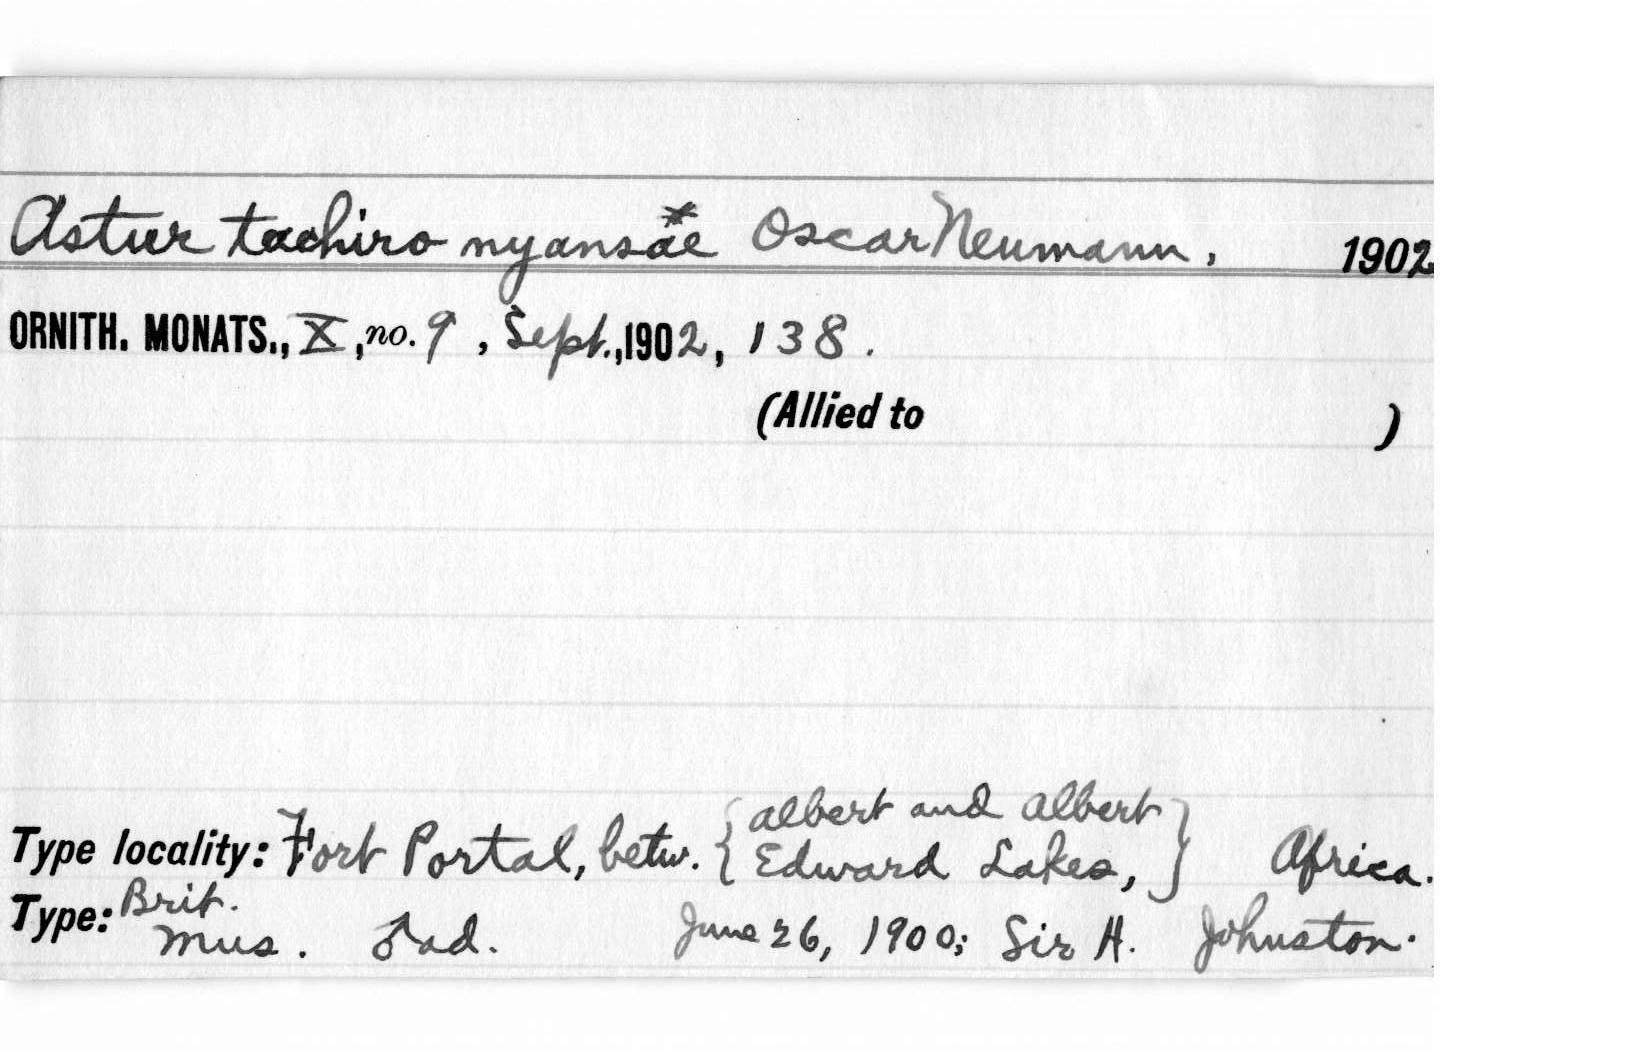 Astur tachiro nyansae* Oscar Neumann. 1902
ORNITH. MONATS., X, no. 9, Sept., 1902, 138.
(Allied to )
Type locality: Fort Portal, betw. { Albert and Albert
Edward Lakes, } Africa.
Type: Brit.
Mus. ♂ ad. June 26, 1900; Sir H. Johnston.